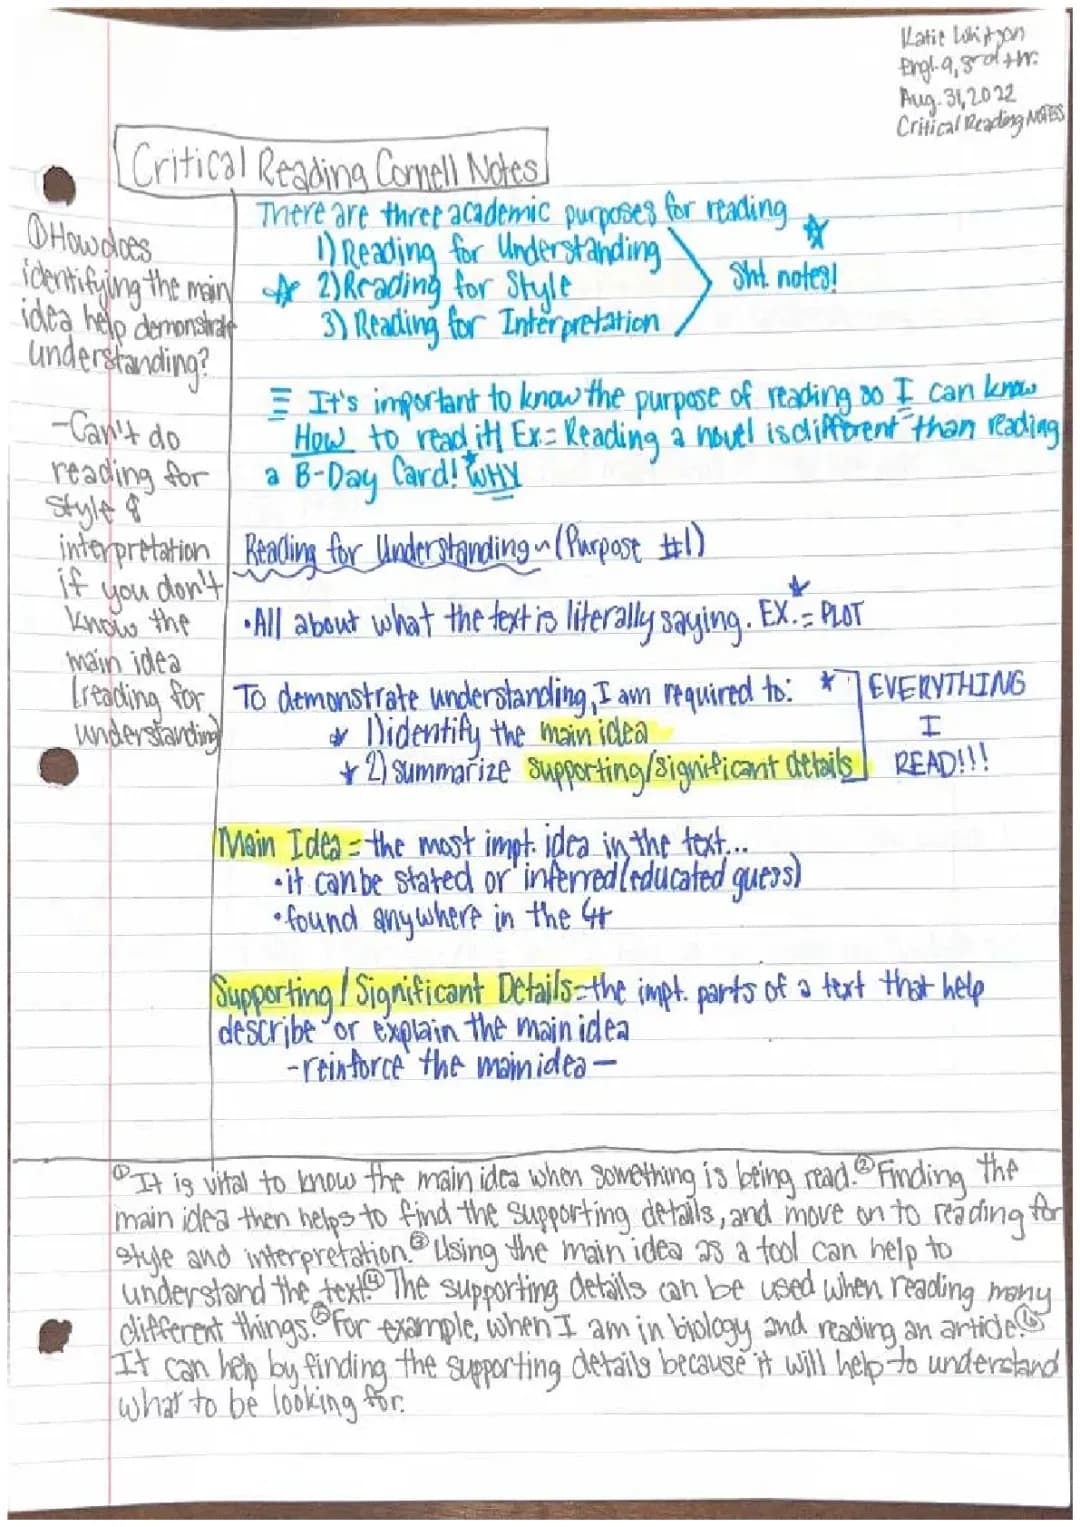 Katie
Engl. 9, 3rd hr.
Aug. 31, 2022
Critical Reading NOTES
Critical Reading Cornell Notes
① How does
identifying the main
idea help demonstrate
understanding?
-Can't do
reading for
style &
interpretation
if you don't
know the
main idea
(reading for
understanding)
There are three academic purposes for reading
1) Reading for Understanding
2) Reading for Style
3) Reading for Interpretation
Sht. notes!
It's important to know the purpose of reading so I can know
How to read it! Ex = Reading a novel is different than reading
a B-Day Card! WHY
Reading for Understanding ~ (Purpose #1)
• All about what the text is literally saying. EX. = PLOT
To demonstrate understanding, I am required to:
1) identify the main idea
2) summarize supporting/significant details
EVERYTHING
I
READ!!!
Main Idea = the most impt. idea in the text...
• it can be stated or inferred (educated guess)
• found anywhere in the
Supporting / Significant Details = the impt. parts of a text that help
describe or explain the main idea
- reinforce the main idea -
① It is vital to know the main idea when something is being read. ② Finding the
main idea then helps to find the supporting details, and move on to reading for
style and interpretation. ③ Using the main idea as a tool can help to
understand the text. ④ The supporting details can be used when reading many
different things. ⑤ For example, when I am in biology and reading an article. ⑥
It can help by finding the supporting details because it will help to understand
what to be looking for.